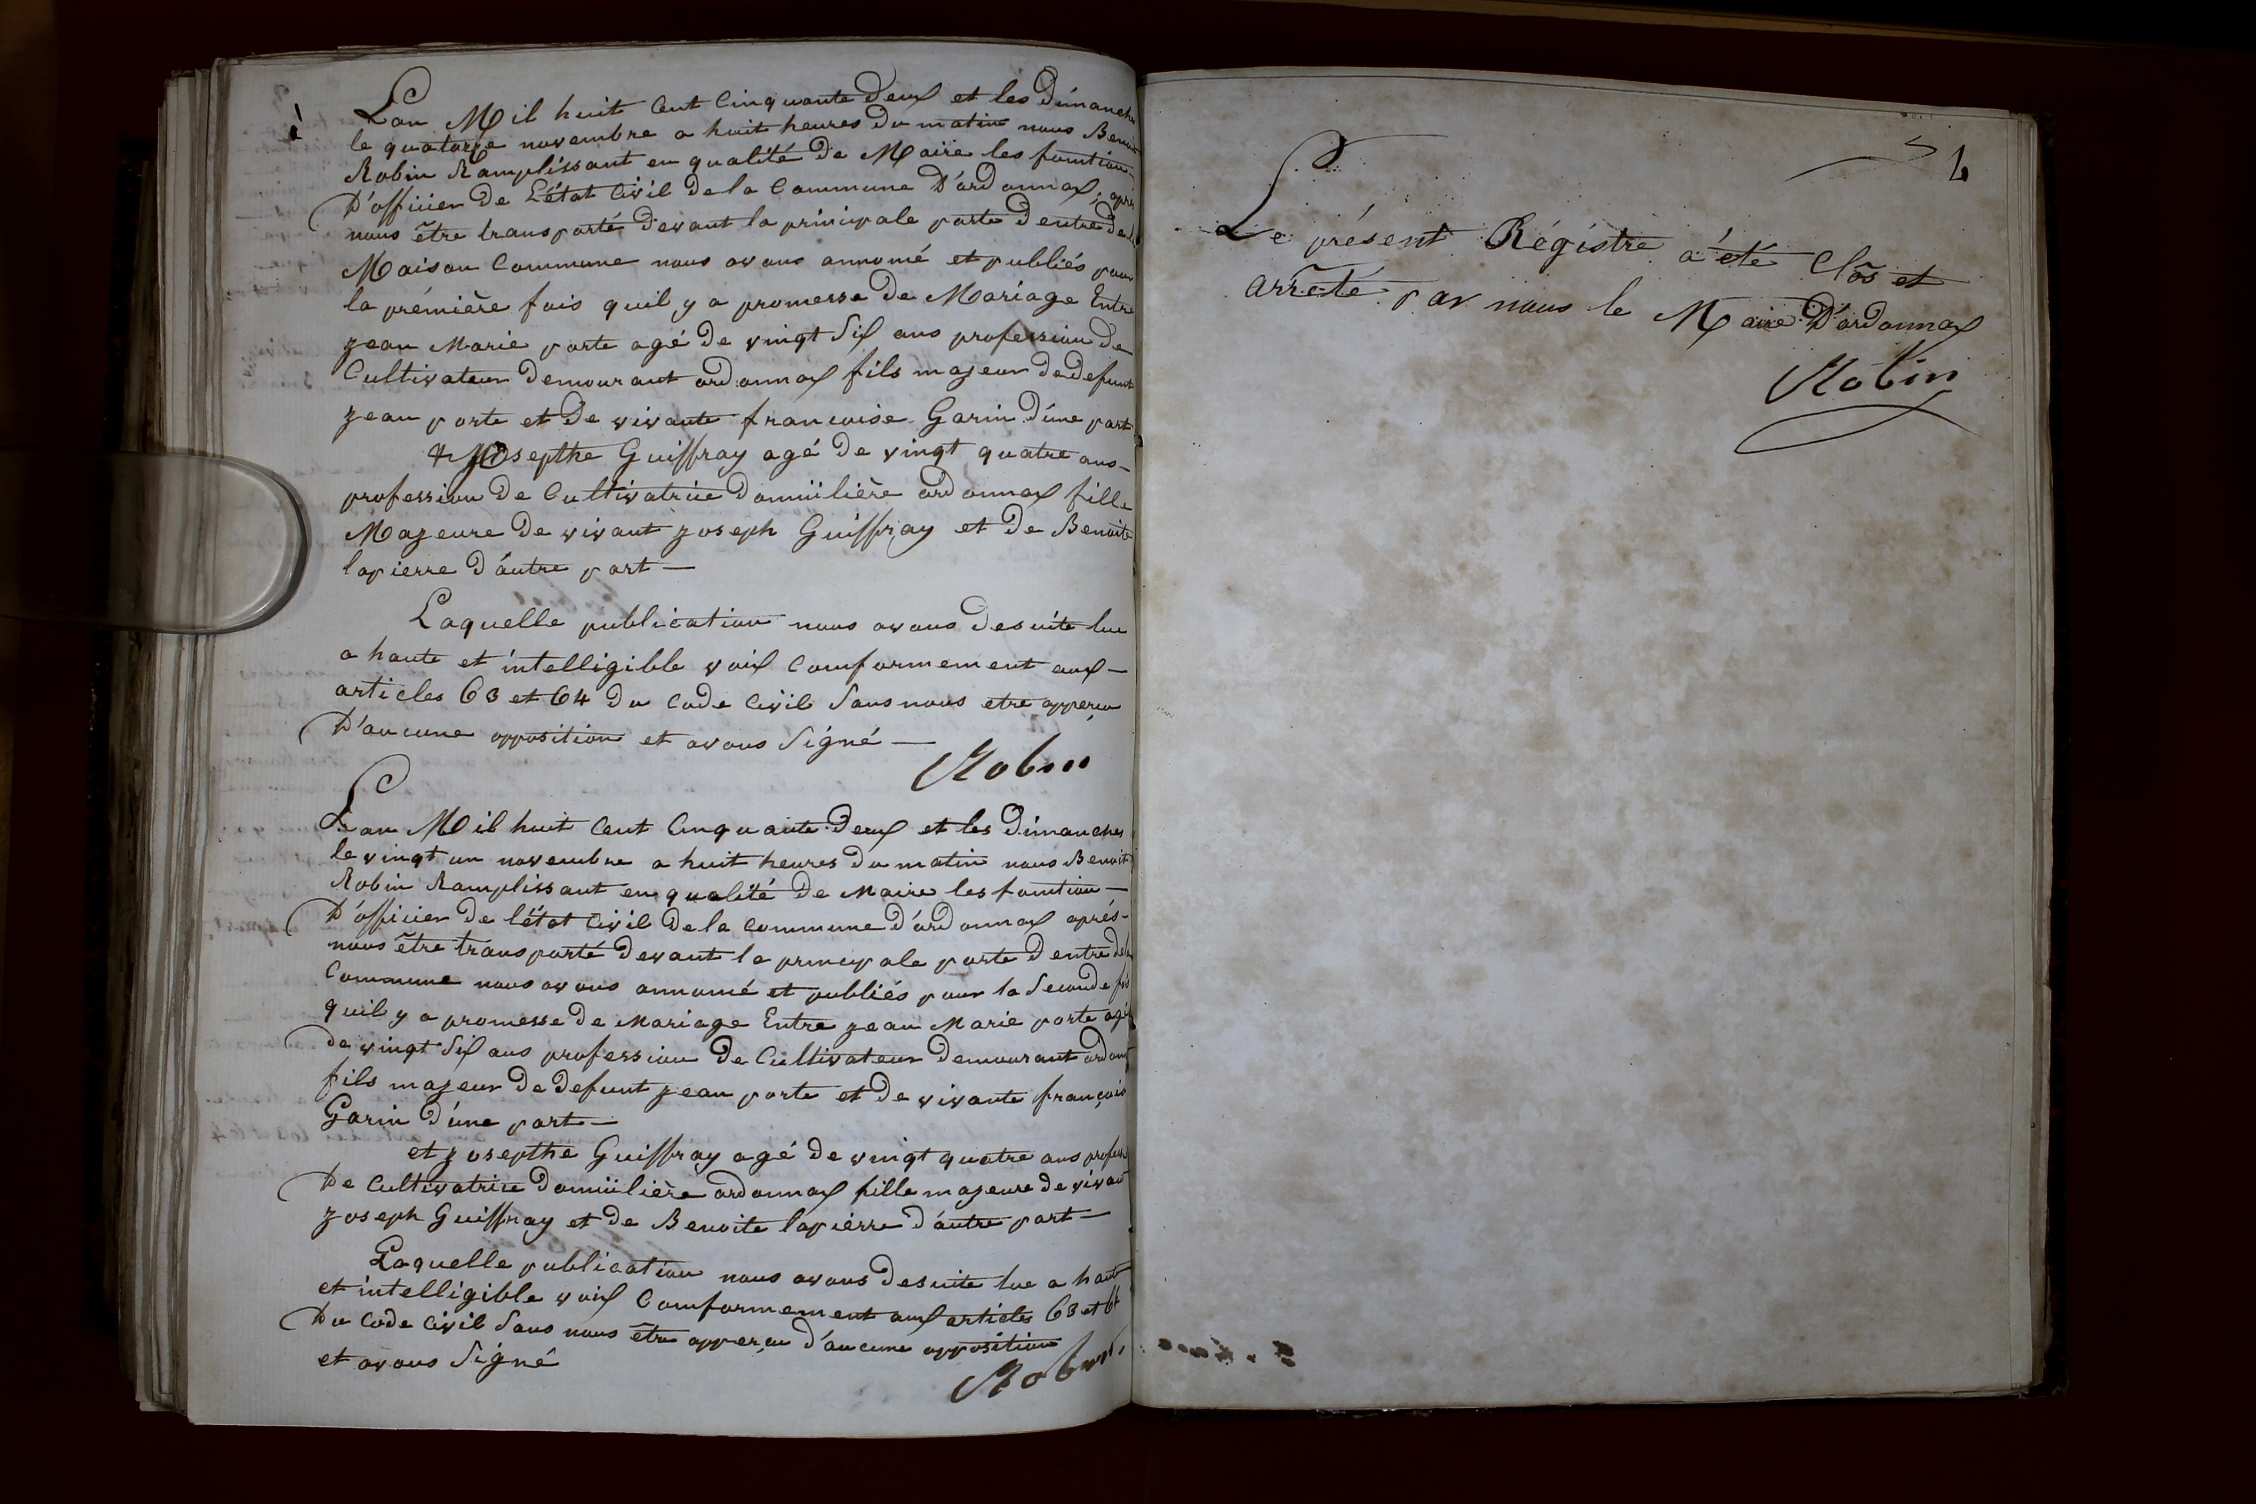 Lan Mil huit Cent Cinquante Deux et les Dimanches
le quatorze novembre a huit heures du matin nous Benoit
Robin Ramplissant en qualité de Maire les fonction
D'officier de L'état Civil de la Commune D'ordonnax, après
nous être transporté devant la principale porte d'entré de la
Maison Commune nous avons annoncé et publiés pour
la prémière fois quil y a promesse de Mariage Entre
jean Marie porte agé de vingt Six ans profession de
Cultivateur demeurant ordonnax fils majeur de defunt
jean porte et de vivante francoise Garin d'une part
& Josepthe Guiffray agé de vingt quatre ans
profession de Cultivatrice domiilière ordonnax fille
Majeure de vivant joseph Guiffray et de Benoite
lapierre d'autre part
Laquelle publication nous avons desuite lue
a haute et intelligible voix Comformement aux
articles 63 et 64 du Code Civil Sans nous etre apperçu
D'aucune opposition et avons Signé
Robin
Lan Mil huit Cent Cinquante Deux et les Dimanches
le vingt un novembre a huit heures du matin nous Benoit
Robin Ramplissant en qualité de Maire les fonction
D'officier de l'état Civil de la Commune d'ordonnax aprés
nous être transporté devant la principale porte d'entré de la
Commune nous avons annoncé et publiés pour la Seconde fois
quil y a promesse de Mariage Entre jean Marie porte agé
de vingt Six ans profession de Cultivateur demeurant ordonnax
fils majeur de defunt jean porte et de vivante françoise
Garin d'une part
et josepthe Guiffray agé de vingt quatre ans profession
De Cultivatrice domiilière ordonnax fille majeure de vivant
joseph Guiffray et de Benoite lapierre d'autre part
Laquelle publication nous avons desuite lue a haute
et intelligible voix Comformement aux articles 63 et 64
Du Code Civil Sans nous être apperçu d'aucune opposition
et avons Signé
Robin
Le présent Régistre a été Clôs et
arrêté par nous le Maire D'ordonnax
Robin